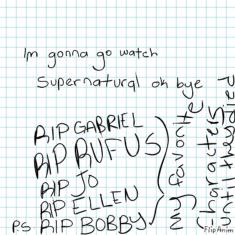 Im gonna go watch
Supernatural ok bye
RIP GABRIEL
RIP RUFUS
RIP JO
RIP ELLEN
PS RIP BOBBY
my favorite
characters
until they died
FlipAnim